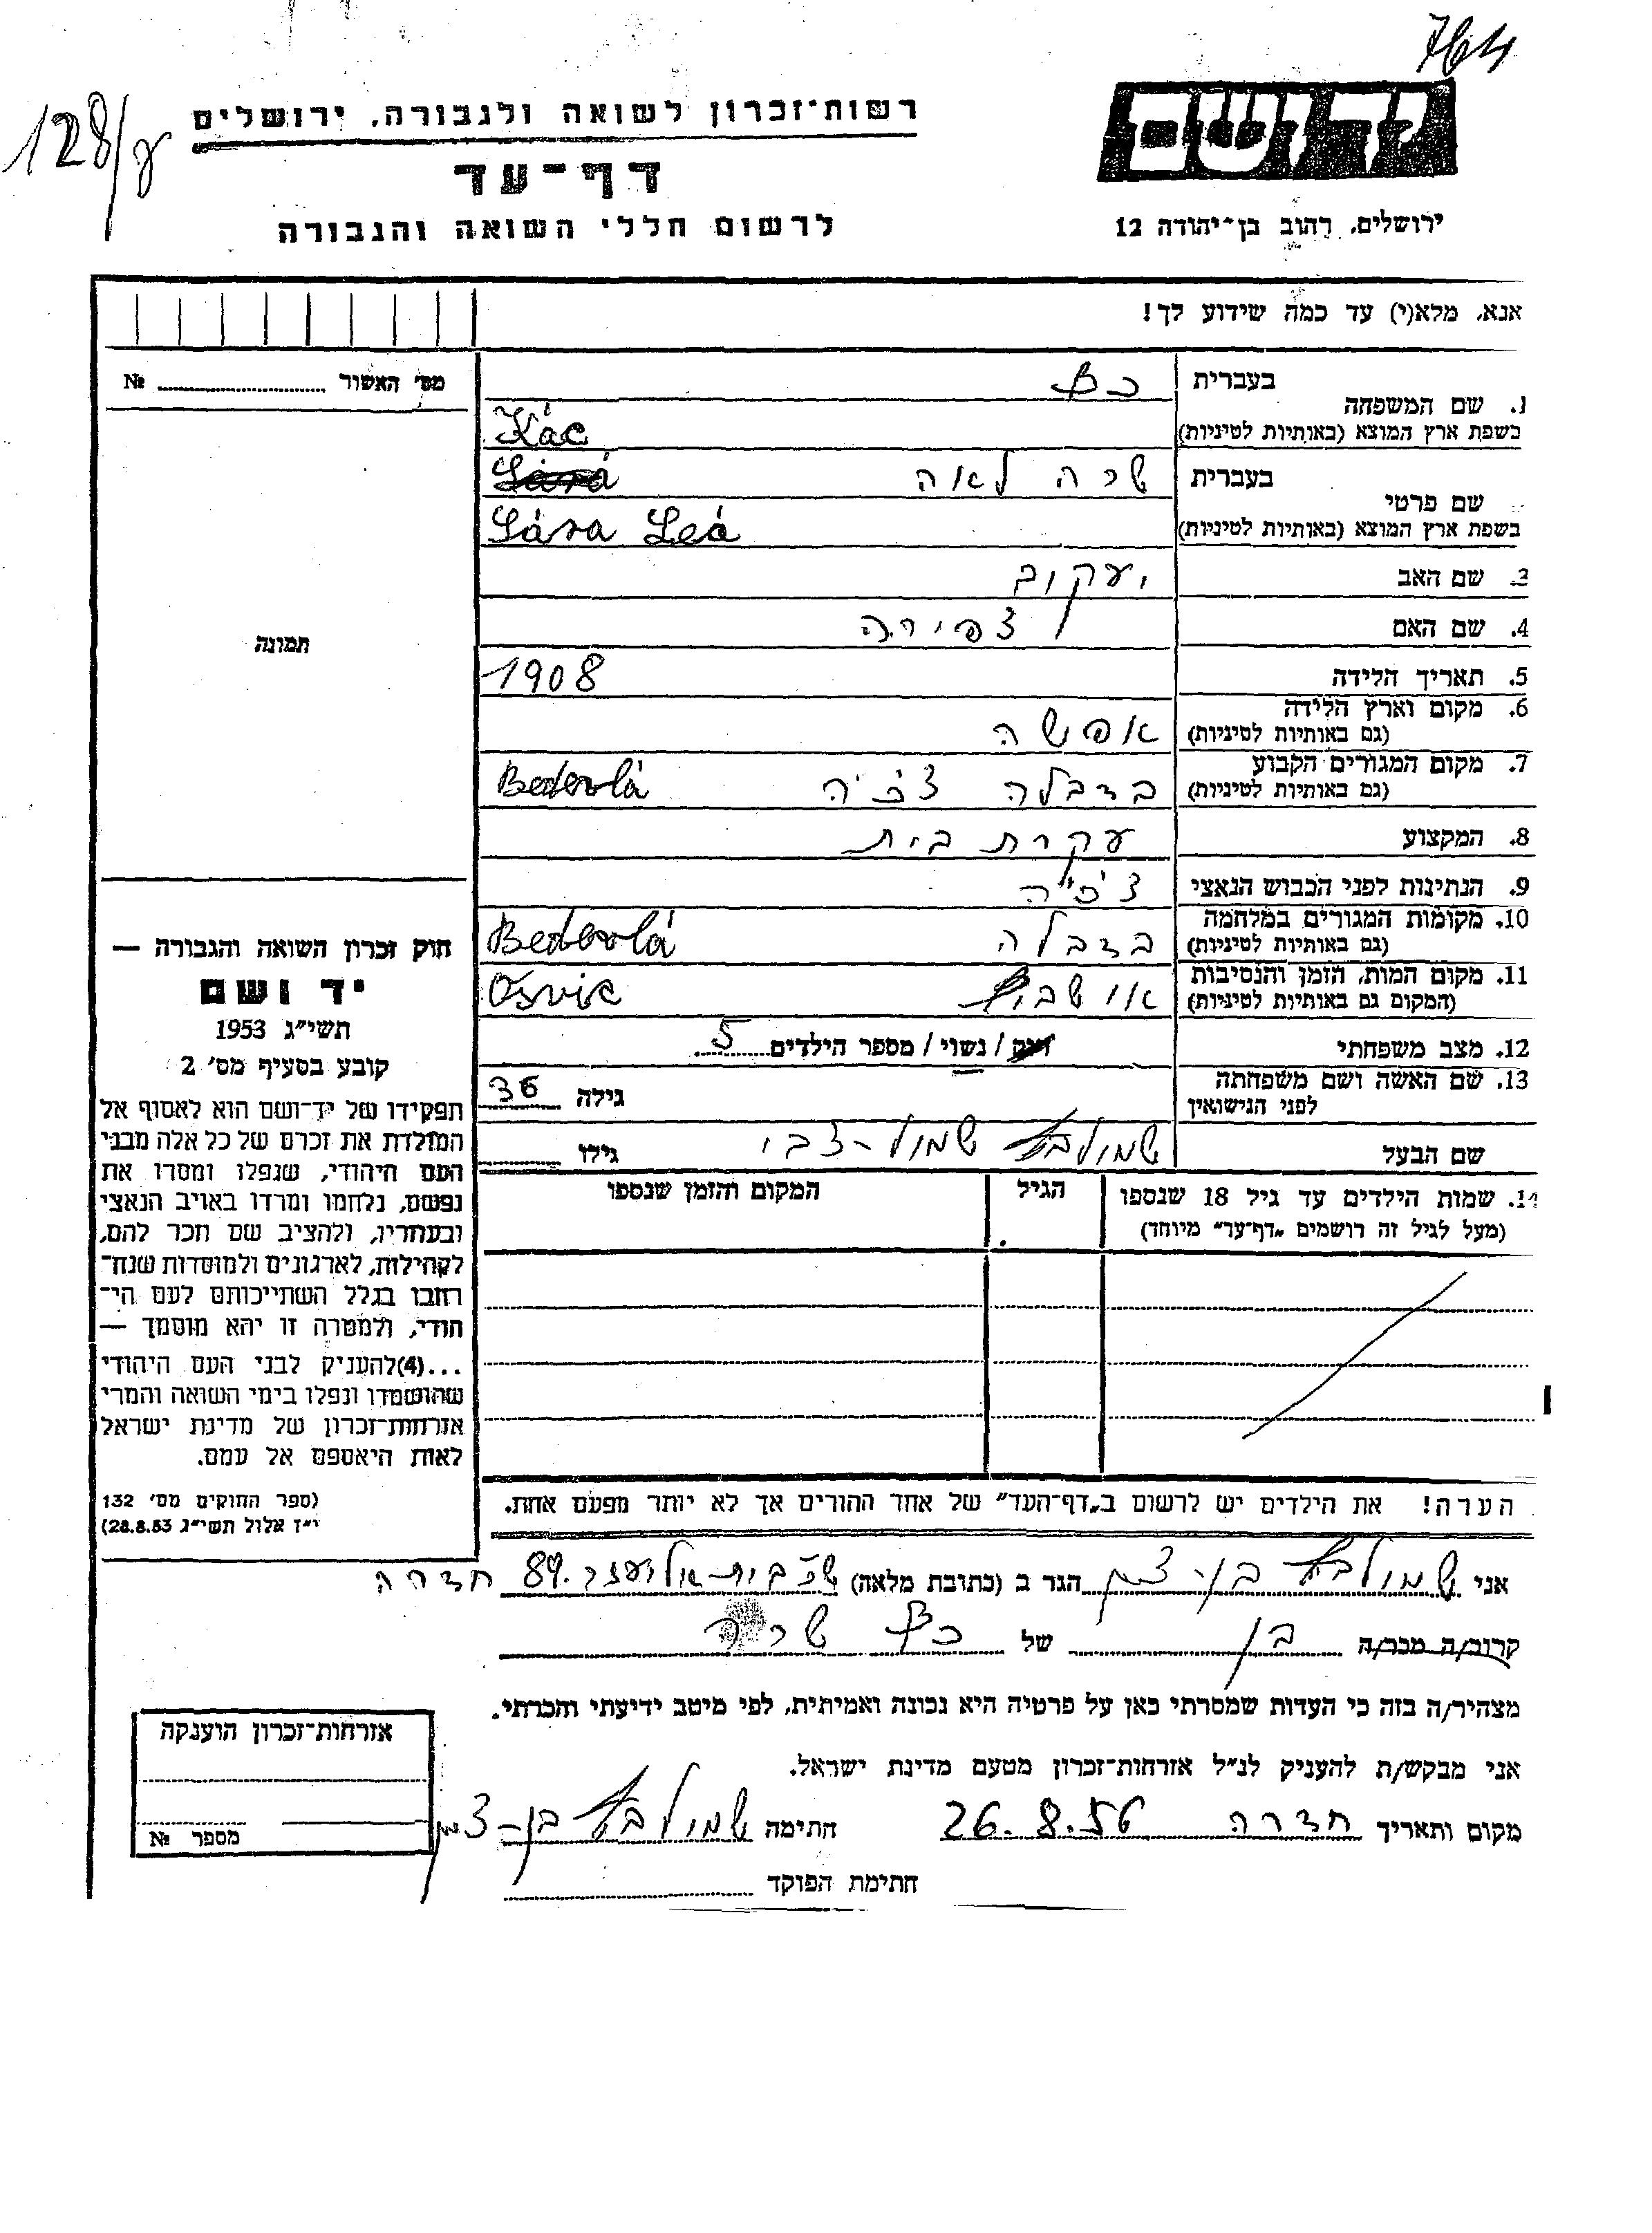 764
128/ע
יד ושם
רשות־זכרון לשואה ולגבורה, ירושלים
דף־עד
לרשום חללי השואה והגבורה
ירושלים, רחוב בן־יהודה 12
אנא, מלא(י) עד כמה שידוע לך!
מס׳ האשור № 
1. שם המשפחה
בעברית כץ
בשפת ארץ המוצא (באותיות לטיניות) Kác
שם פרטי
בעברית שרה לאה
בשפת ארץ המוצא (באותיות לטיניות) Sára Leá
3. שם האב יעקוב
4. שם האם צפירה
5. תאריך הלידה 1908
6. מקום וארץ הלידה
(גם באותיות לטיניות) אפשה
7. מקום המגורים הקבוע
(גם באותיות לטיניות) בדבלה צ׳כיה Bedevlá
8. המקצוע עקרת בית
9. הנתינות לפני הכבוש הנאצי צ׳כיה
10. מקומות המגורים במלחמה
(גם באותיות לטיניות) בדבלה Bedevlá
11. מקום המות, הזמן והנסיבות
(המקום גם באותיות לטיניות) אושביץ Osvic
12. מצב משפחתי רווק / נשוי / מספר הילדים 5
13. שם האשה ושם משפחתה
לפני הנישואין גילה 36
שם הבעל שמולביץ שמול-צבי גילו
14. שמות הילדים עד גיל 18 שנספו הגיל המקום והזמן שנספו
(מעל לגיל זה רושמים „דף־עד״ מיוחד)
הערה! את הילדים יש לרשום ב„דף־העד״ של אחד ההורים אך לא יותר מפעם אחת.
תמונה
חוק זכרון השואה והגבורה —
יד ושם
תשי״ג 1953
קובע בסעיף מס׳ 2
תפקידו של יד־ושם הוא לאסוף אל
המולדת את זכרם של כל אלה מבני
העם היהודי, שנפלו ומסרו את
נפשם, נלחמו ומרדו באויב הנאצי
ובעוזריו, ולהציב שם וזכר להם,
לקהילות, לארגונים ולמוסדות שנח־
רבו בגלל השתייכותם לעם הי־
הודי, ולמטרה זו יהא מוסמך —
...(4)להעניק לבני העם היהודי
שהושמדו ונפלו בימי השואה והמרי
אזרחות־זכרון של מדינת ישראל
לאות היאספם אל עמם.
(ספר החוקים מס׳ 132
י״ז אלול תשי״ג 28.8.53)
אני שמולביץ בן-ציון הגר ב (כתובת מלאה) שכ׳ בית-אליעזר 89. חדרה
קרוב/ה מכר/ה בן של כץ שרה
מצהיר/ה בזה כי העדות שמסרתי כאן על פרטיה היא נכונה ואמיתית, לפי מיטב ידיעתי והכרתי.
אני מבקש/ת להעניק לנ״ל אזרחות־זכרון מטעם מדינת ישראל.
מקום ותאריך חדרה 26.8.56 חתימה שמולביץ בן-ציון
חתימת הפוקד
אזרחות־זכרון הוענקה
מספר №